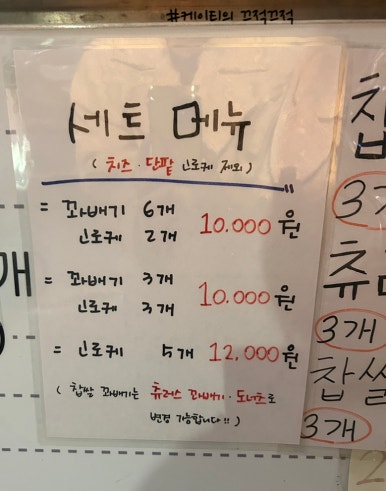 #케이티의 끄적끄적
세트 메뉴
( 치즈 · 단팥 고로케 제외 )
= 꽈배기 6개
고로케 2개 10.000원
= 꽈배기 3개
고로케 3개 10.000원
= 고로케 5개 12,000원
( 찹쌀 꽈배기는 츄러스 꽈배기 · 도너츠로
변경 가능합니다!! )
개
찹
3개
츄
3개
찹쌀
3개